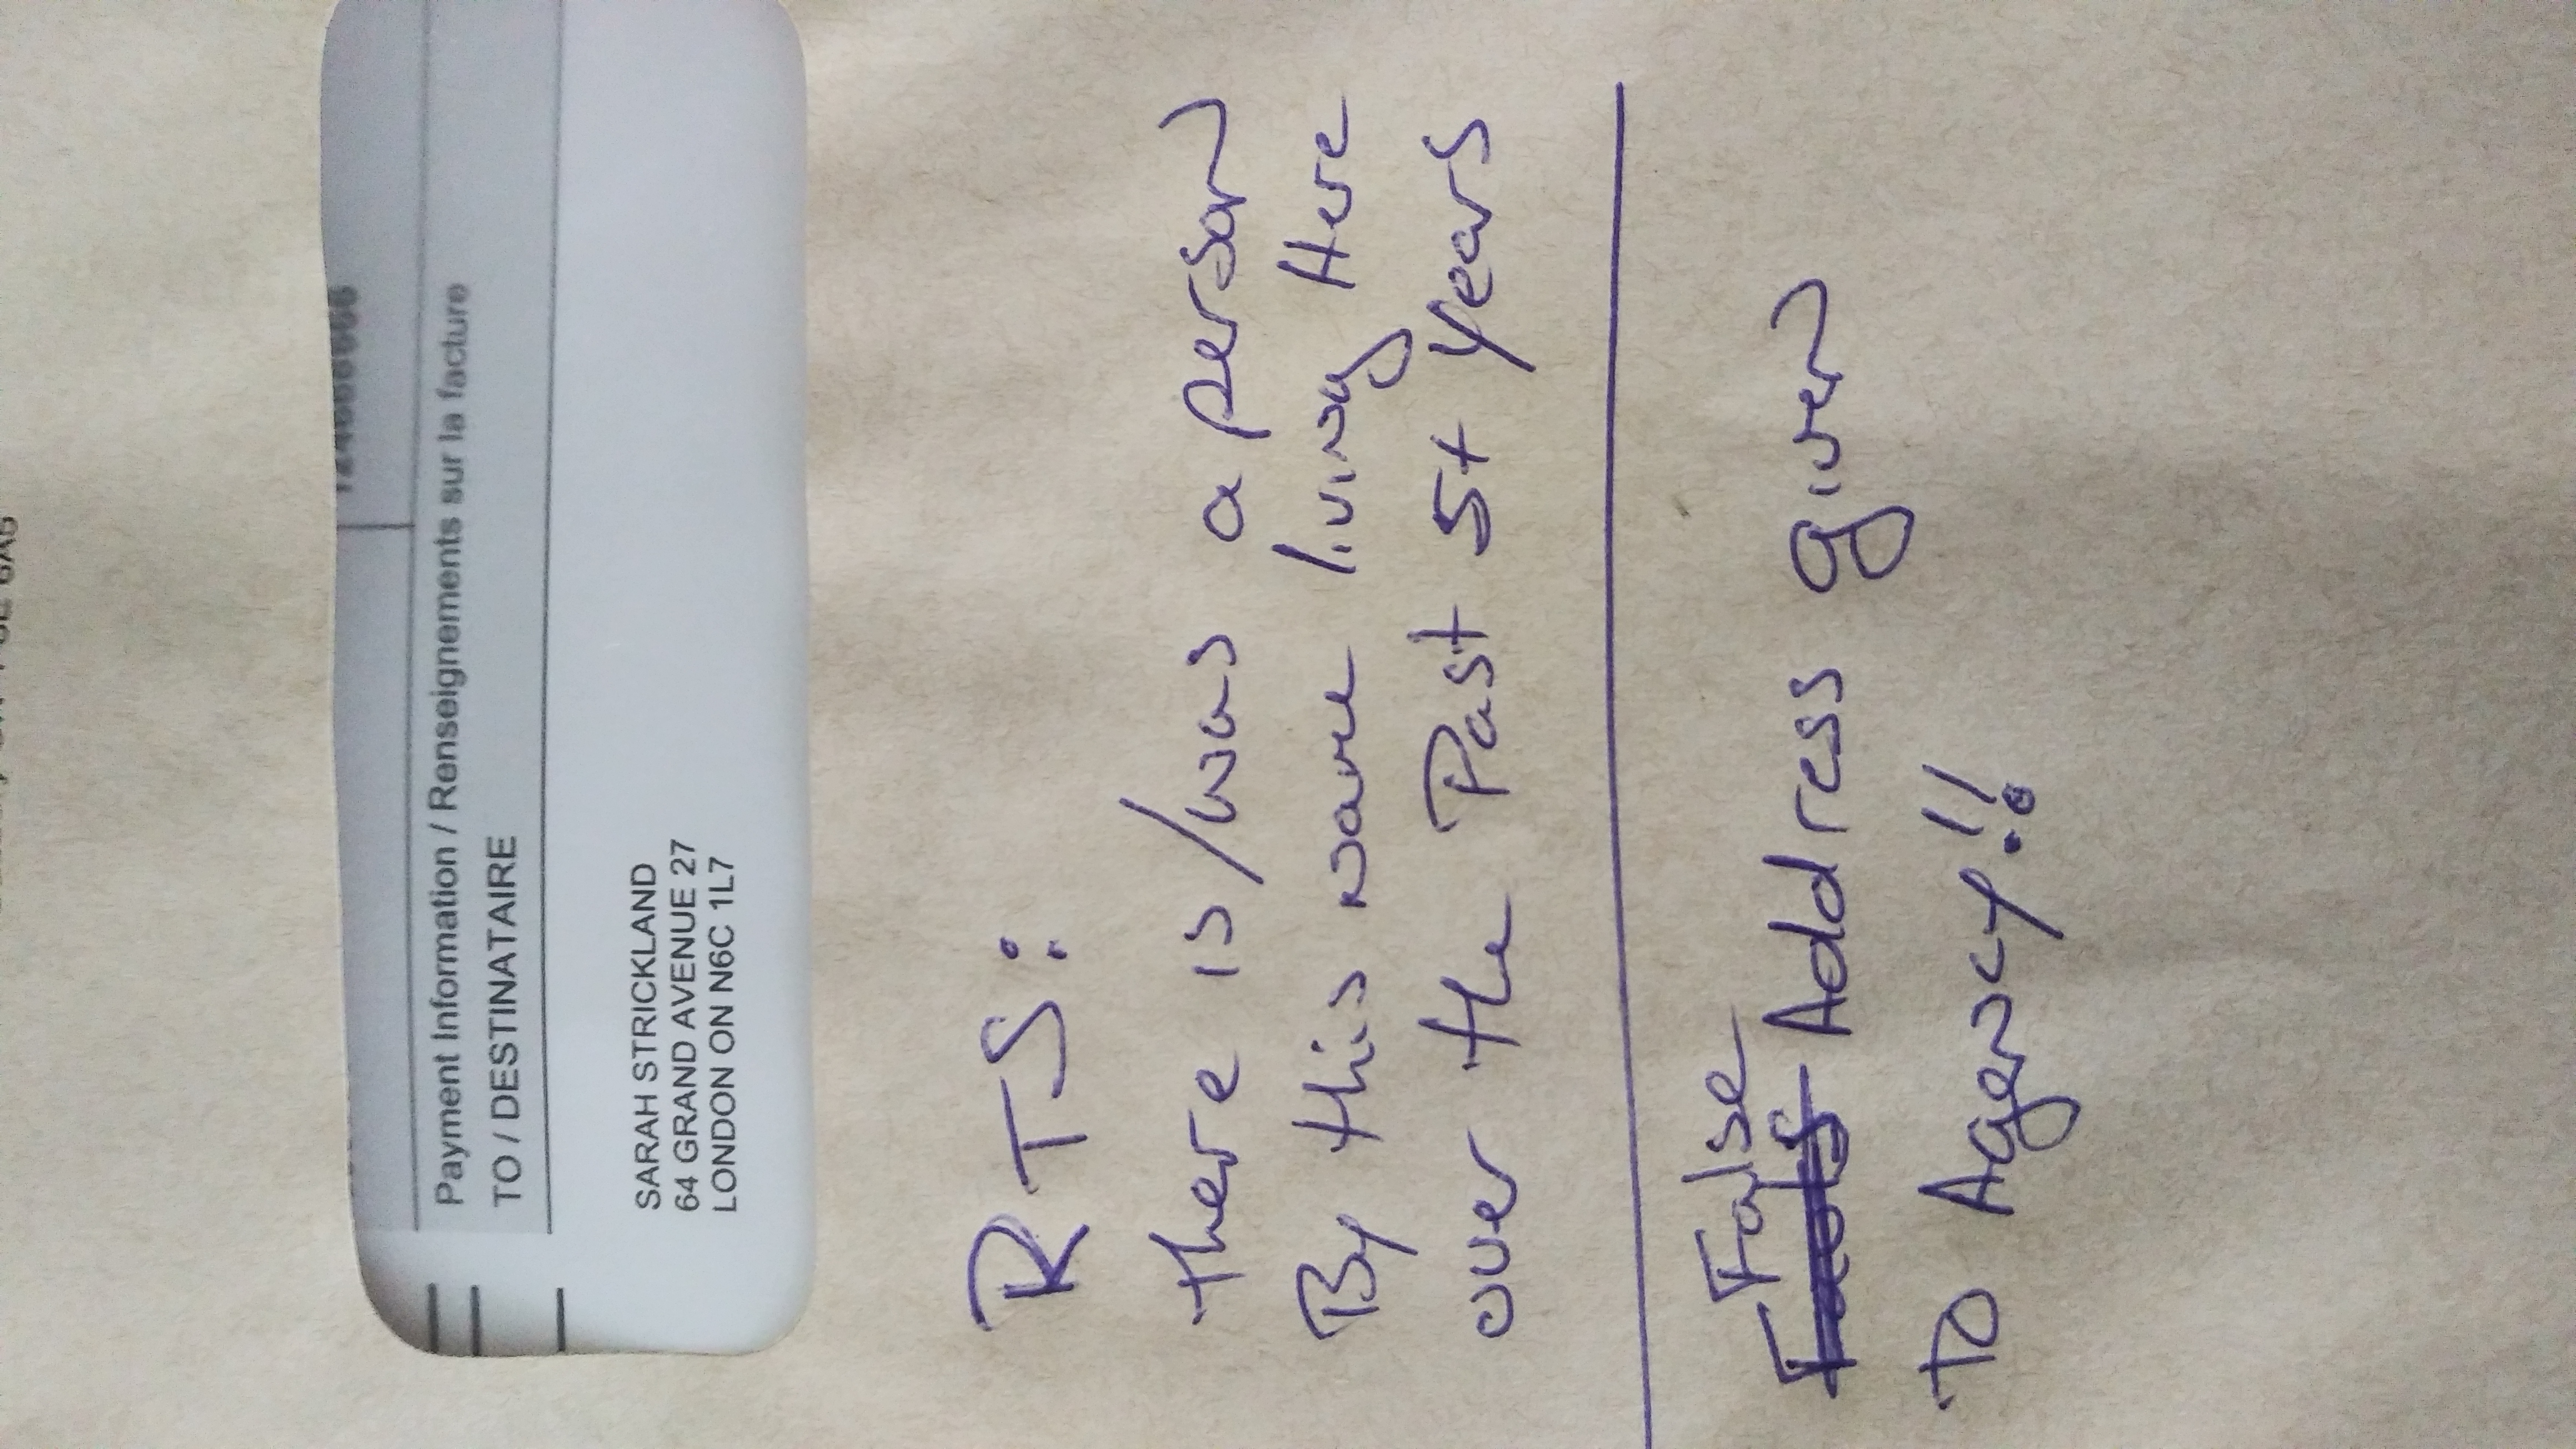 6A5
Payment Information / Renseignements sur la facture
TO / DESTINATAIRE
SARAH STRICKLAND
64 GRAND AVENUE 27
LONDON ON N6C 1L7
RTS:
there is/was a person
By this name living Here
over the Past 5+ years
False
Address given
To Agency!!